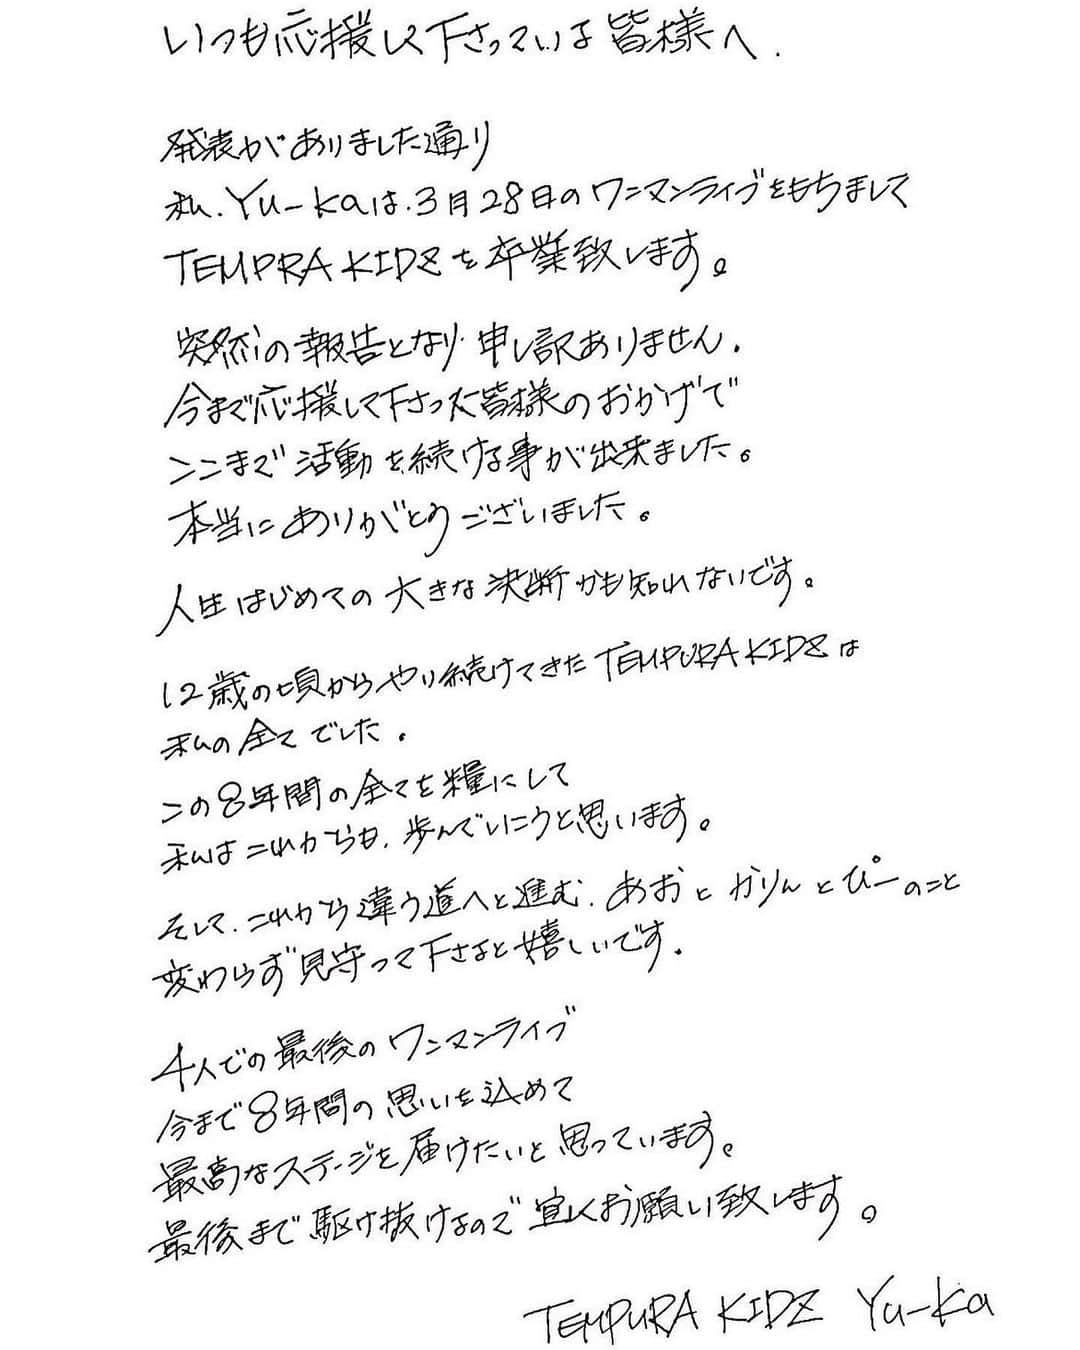 いつも応援して下さっている皆様へ.
発表がありました通り
私、Yu-kaは、3月28日のワンマンライブをもちまして
TEMPRA KIDZを卒業致します。
突然の報告となり 申し訳ありません.
今まで応援して下さった皆様のおかげで
ここまで活動を続ける事が出来ました。
本当にありがとうございました。
人生はじめての大きな決断かも知れないです。
12歳の頃からやり続けてきたTEMPURA KIDZは
私の全てでした.
この8年間の全てを糧にして
私はこれからも、歩んでいこうと思います。
そして、これから違う道へと進む、あおとかりんとぴーのこと
変わらず見守って下さると嬉しいです.
4人での最後のワンマンライブ
今まで8年間の思いを込めて
最高なステージを届けたいと思っています。
最後まで駆け抜けるので宜しくお願い致します。
TEMPURA KIDZ Yu-ka